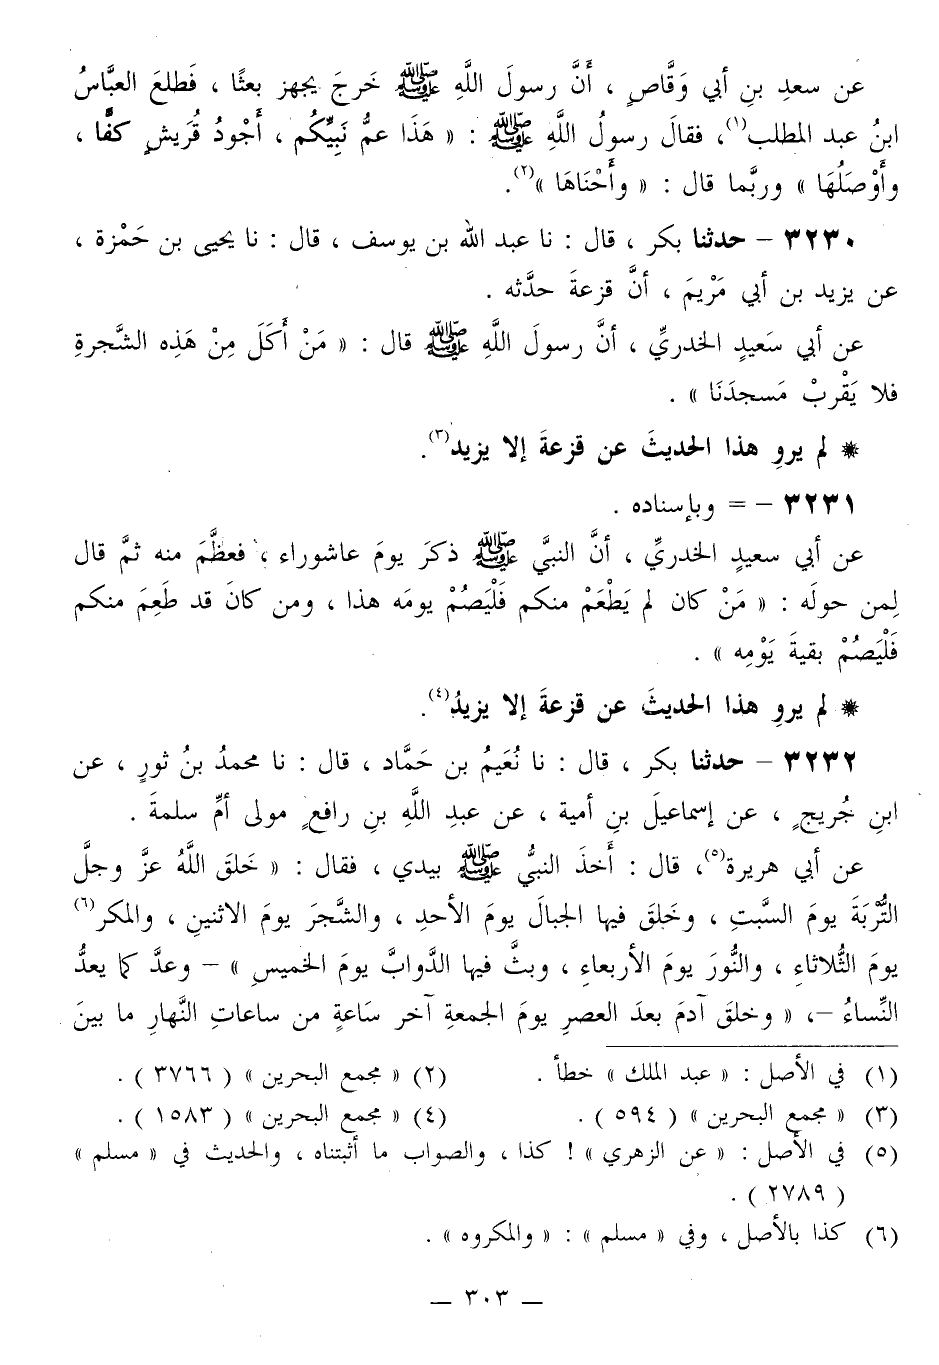 عن سعدِ بنِ أبي وَقَّاصٍ ، أَنَّ رسولَ اللَّهِ ﷺ خَرجَ يجهز بعثًا ، فَطلعَ العبَّاسُ
ابنُ عبد المطلب(١)، فقالَ رسولُ اللَّهِ ﷺ : « هَذَا عمُّ نَبِيِّكُم ، أَجْودُ قُرَيشٍ كفًّا ،
وأَوْصَلُهَا » وربَّما قال : « وأَحْنَاهَا »(٢).
٣٢٣٠ – حدثنا بكر ، قال : نا عبد الله بن يوسف ، قال : نا يحيى بن حَمْزة ،
عن يزيد بن أبي مَرْيمَ ، أنَّ قزعةَ حدَّثه .
عن أبي سَعيدٍ الخدريِّ ، أنَّ رسولَ اللَّهِ ﷺ قال : « مَنْ أَكَلَ مِنْ هَذِه الشَّجرةِ
فلا يَقْربْ مَسجدَنَا » .
* لم يروِ هذا الحديثَ عن قزعةَ إلا يزيد(٣).
٣٢٣١ – = وبإسناده .
عن أبي سعيدٍ الخدريِّ ، أنَّ النبيَّ ﷺ ذكرَ يومَ عاشوراء ، فعظَّمَ منه ثمَّ قال
لِمن حولَه : « مَنْ كان لم يَطْعَمْ منكم فَلْيَصُمْ يومَه هذا ، ومن كانَ قد طَعِمَ منكم
فَلْيَصُمْ بقيةَ يَوْمِه » .
* لم يروِ هذا الحديثَ عن قزعةَ إلا يزيدُ(٤).
٣٢٣٢ – حدثنا بكر ، قال : نا نُعَيمُ بن حَمَّاد ، قال : نا محمدُ بنُ ثورٍ ، عن
ابنِ جُريجٍ ، عن إسماعيلَ بنِ أمية ، عن عبدِ اللَّهِ بنِ رافعٍ مولى أمِّ سلمةَ .
عن أبي هريرة(٥)، قال : أَخذَ النبيُّ ﷺ بيدي ، فقال : « خَلقَ اللَّهُ عزَّ وجلَّ
التُّرْبَةَ يومَ السَّبتِ ، وخَلقَ فيها الجبالَ يومَ الأحدِ ، والشَّجرَ يومَ الاثنينِ ، والمكر(٦)
يومَ الثُّلاثاءِ ، والنُّورَ يومَ الأربعاءِ ، وبثَّ فيها الدَّوابَّ يومَ الخميسِ » – وعدَّ كما يعدُّ
النِّساءُ –، « وخلقَ آدمَ بعدَ العصرِ يومَ الجمعةِ آخر سَاعةٍ من ساعاتِ النَّهارِ ما بينَ
(١) في الأصل : « عبد الملك » خطأ . (٢) « مجمع البحرين » ( ٣٧٦٦ ) .
(٣) « مجمع البحرين » ( ٥٩٤ ) . (٤) « مجمع البحرين » ( ١٥٨٣ ) .
(٥) في الأصل : « عن الزهري » ! كذا ، والصواب ما أثبتناه ، والحديث في « مسلم »
( ٢٧٨٩ ) .
(٦) كذا بالأصل ، وفي « مسلم » : « والمكروه » .
– ٣٠٣ –